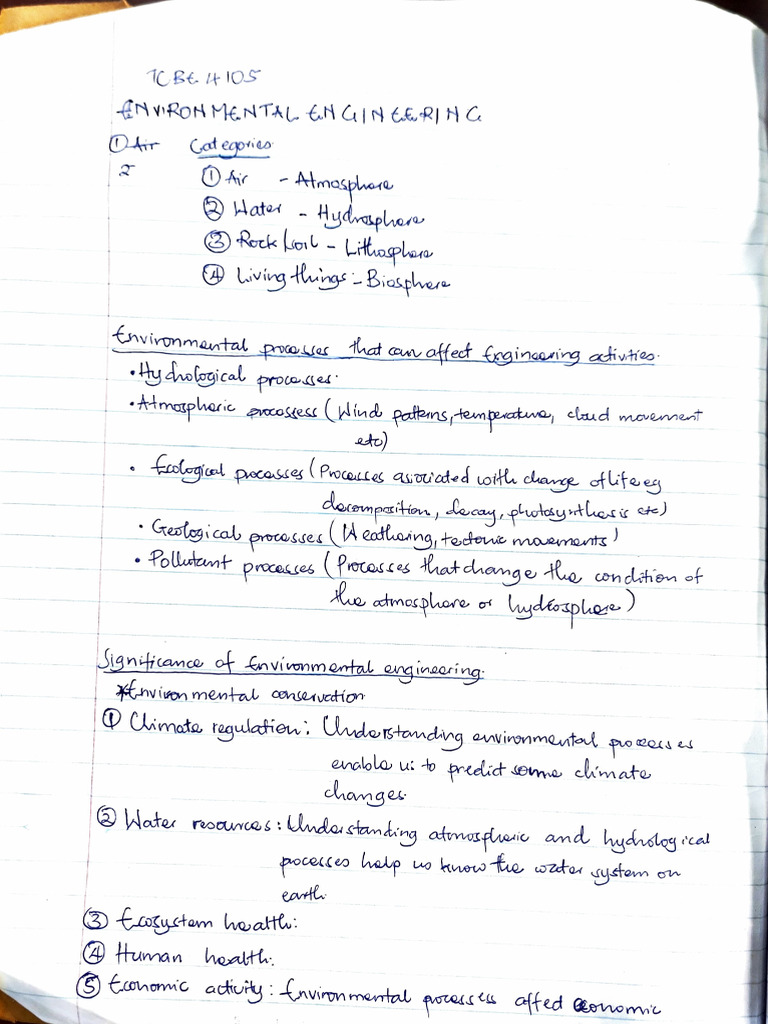 TCBE 4105
ENVIRONMENTAL ENGINEERING
① Air Categories
2
① Air - Atmosphere
② Water - Hydrosphere
③ Rock/soil - Lithosphere
④ Living things - Biosphere
Environmental processes that can affect Engineering activities.
• Hydrological processes.
• Atmospheric processess (Wind patterns, temperature, cloud movement
etc)
• Ecological processes (Processes associated with change of life eg
decomposition, decay, photosynthesis etc)
• Geological processes (Weathering, tectonic movements)
• Pollutant processes (Processes that change the condition of
the atmosphere or hydrosphere)
Significance of Environmental engineering.
*Environmental conservation
① Climate regulation: Understanding environmental processes
enable us to predict some climate
changes.
② Water resources: Understanding atmospheric and hydrological
processes help us know the water system on
earth.
③ Ecosystem health:
④ Human health:
⑤ Economic activity: Environmental processes affect economic